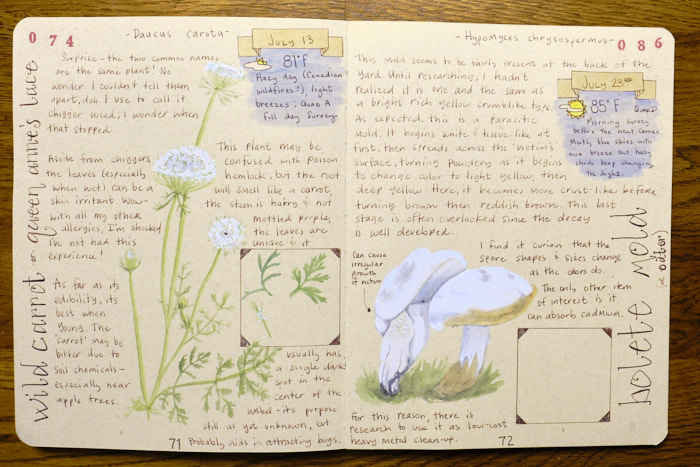 074
-Daucus Carota-
July 13
81°F
Hazy day (Canadian
wildfires?), light
breezes; Quad A
full day survey-
wild carrot or queen anne's lace
Surprise - the two common names
are the same plant! No
wonder I couldn't tell them
apart, doh. I use to call it
chigger weed; I wonder when
that stopped.
Aside from chiggers
the leaves (especially
when wet) can be a
skin irritant. Wow-
with all my other
allergies, I'm shocked
I've not had this
experience!
As far as its
edibility, its
best when
young. The
'carrot' may be
bitter due to
soil chemicals-
especially near
apple trees.
This plant may be
confused with poison
hemlock, but the root
will smell like a carrot,
the stem is hairy & not
mottled purple,
the leaves are
unique & it
usually has
a single dark
spot in the
center of the
umbel - its purpose
still as yet unknown, but
probably aids in attracting bugs.
71
-Hypomyces chrysospermus-
086
July 23
85°F Quad D
Morning survey
before the heat comes
Math, blue skies with
nice breeze but hazy
clouds keep changing
the light.
This mold seems to be fairly present at the back of the
yard. Until researching, I hadn't
realized it is one and the same as
a bright rich yellow crumblike type.
As expected, this is a parasitic
mold. It begins white & tissue-like at
first, then spreads across the 'victim's'
surface, turning powdery as it begins
to change color to light yellow, then
deep yellow. Here, it becomes more crust-like before
turning brown then reddish brown. This last
stage is often overlooked since the decay
is well developed.
I find it curious that the
spore shapes & sizes change
as the odors do.
The only other item
of interest is it
can absorb cadmium.
Can cause
irregular
growth of
victim
For this reason, there is
research to use it as low-cost
heavy metal clean-up.
72
bolete mold